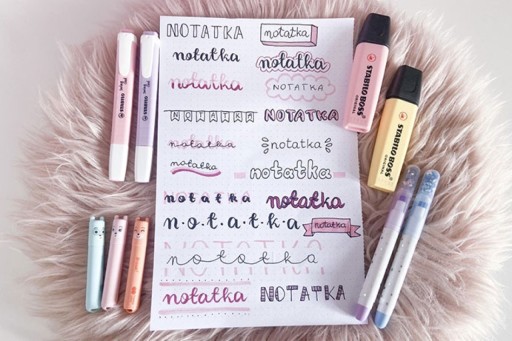 NOTATKA
notatka
notatka
notatka
notatka
NOTATKA
NOTATKA
NOTATKA
notatka
notatka
notatka
notatka
notatka
notatka
n·o·t·a·t·k·a
notatka
NOTATKA
notatka
notatka
NOTATKA
STABILO BOSS
ORIGINAL
STABILO BOSS
ORIGINAL
STABILO
STABILO